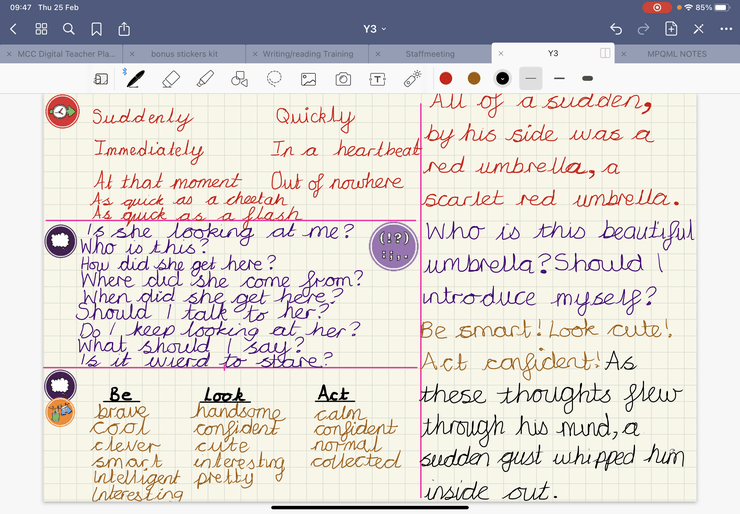 09:47 Thu 25 Feb
85%
Y3
MCC Digital Teacher Pla...
bonus stickers kit
Writing/reading Training
Staffmeeting
Y3
MPQML NOTES
Suddenly Quickly
Immediately In a heartbeat
At that moment Out of nowhere
As quick as a cheetah
As quick as a flash
Is she looking at me?
Who is this?
How did she get here?
Where did she come from?
When did she get here?
Should I talk to her?
Do I keep looking at her?
What should I say?
Is it wierd to stare?
(!?)
Be Look Act
brave handsome calm
cool confident confident
clever cute normal
smart interesting collected
intelligent pretty
interesting
All of a sudden,
by his side was a
red umbrella, a
scarlet red umbrella.
Who is this beautiful
umbrella? Should I
introduce myself?
Be smart! Look cute!
Act confident! As
these thoughts flew
through his mind, a
sudden gust whipped him
inside out.